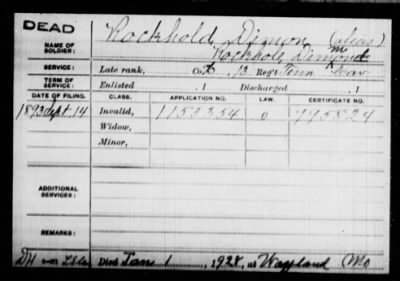 DEAD
NAME OF SOLDIER: Rockhold, Dimon (alias)
Rockhold, Dimond
SERVICE: Late rank, Co. 13 Regt Tenn Cav
TERM OF SERVICE: Enlisted , 1 Discharged , 1
DATE OF FILING. CLASS. APPLICATION NO. LAW. CERTIFICATE NO.
1893 Sept 14 Invalid, 1153354 0 995824
Widow,
Minor,
ADDITIONAL SERVICES:
REMARKS:
Died Jan 1, 1928, at Wayland Mo